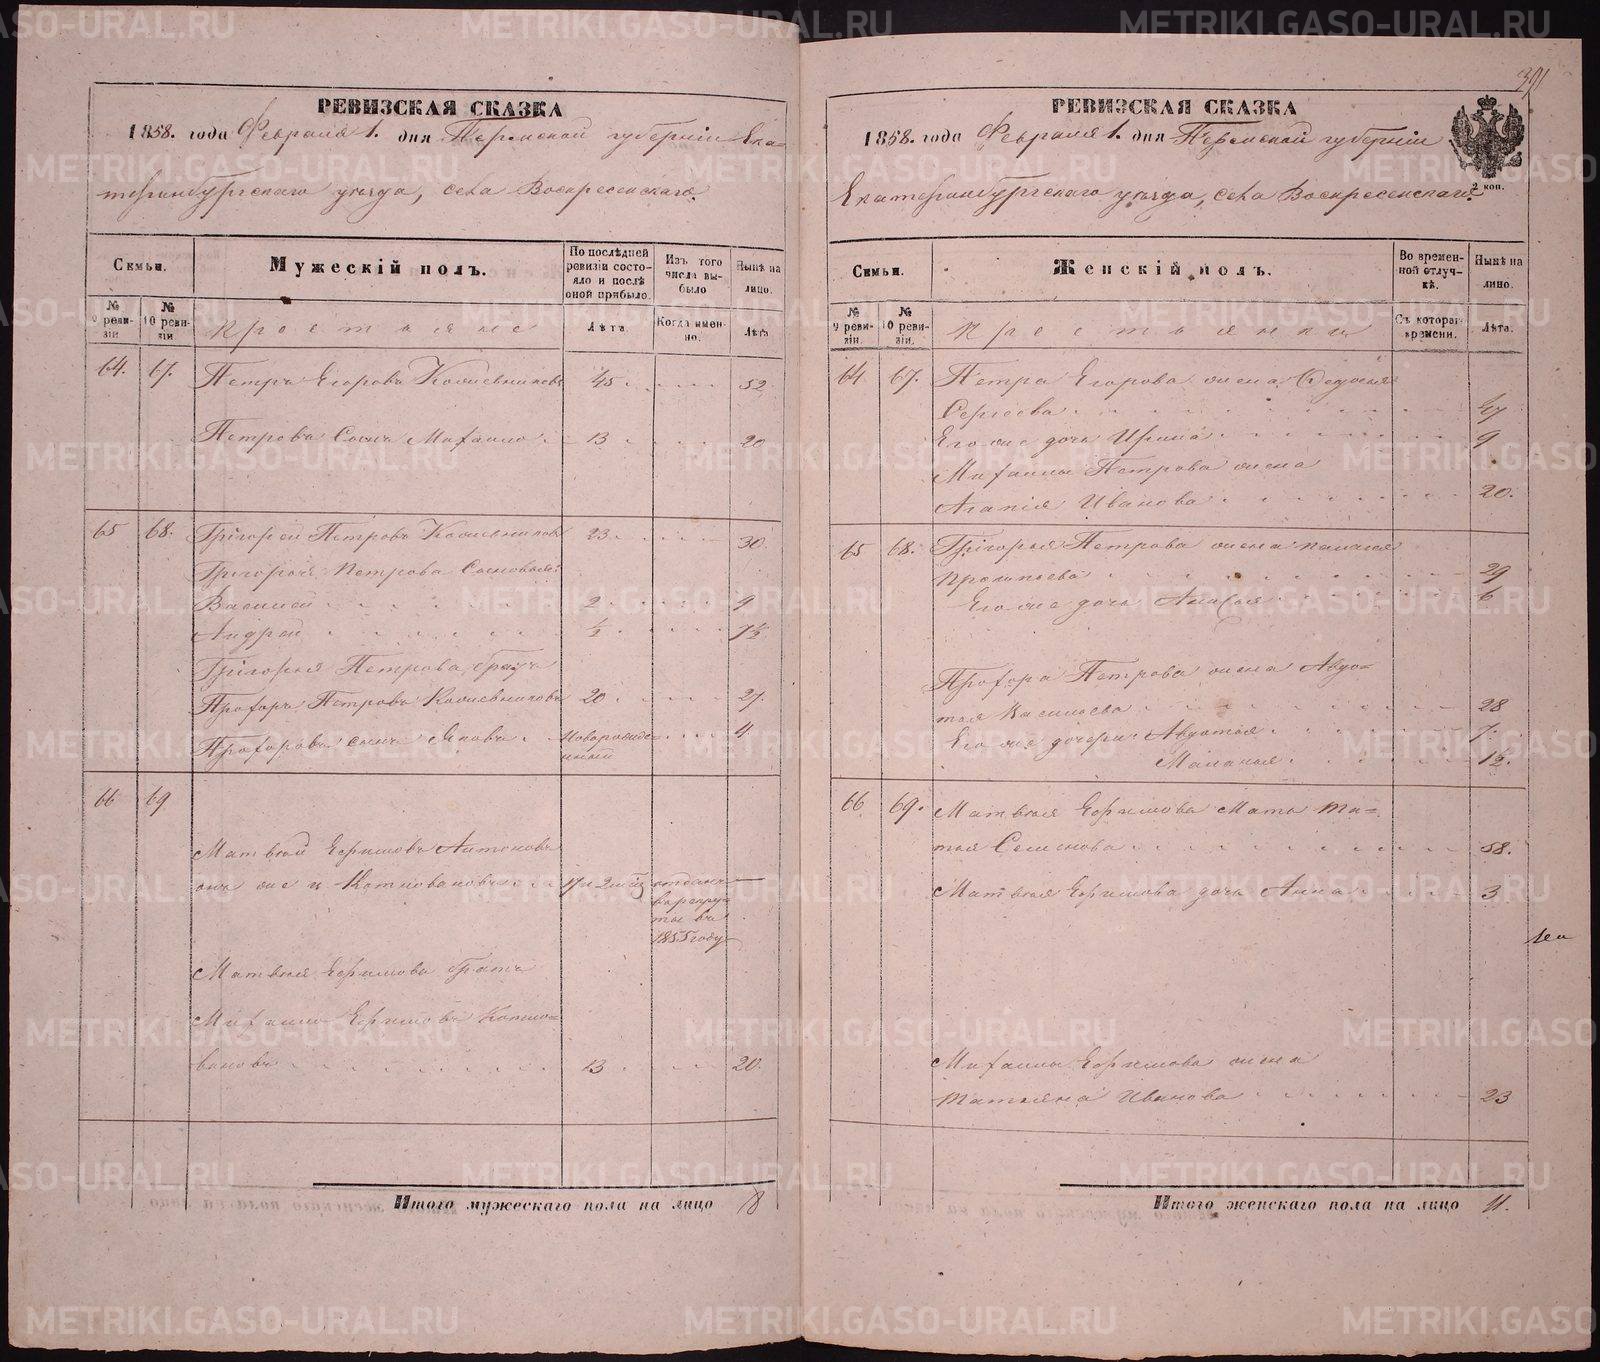 РЕВИЗСКАЯ СКАЗКА
1858. года Февраля 1. дня Пермской губернiи Ека=
теринбургскаго уѣзда, села Воскресенскаго.
Семьи.
Мужескiй полъ.
По послѣдней ревизiи состояло и послѣ оной прибыло.
Изъ того числа выбыло
Нынѣ на лицо.
№ 9 ревизiи
№ 10 ревизiи.
Крестьяне
Лѣта.
Когда именно.
Лѣта
64. 67. Петръ Егоровъ Кожевниковъ 45 52
Петровъ Сынъ Михаило 13 20
65 68. Григорей Петровъ Кожевниковъ 23 30
Григорья Петрова Сыновья:
Василей 2 9
Андрей ½ 7½
Григорья Петрова братъ
Прохоръ Петровъ Кожевниковъ 20 27.
Прохоровъ сынъ Яковъ новорожде
нный 4
66 69
Матвей Ефимовъ Антоновъ
онъ же и Котловановъ 17 и 2 отданъ
в рекру
ты въ
1855 году
Матвея Ефимова братъ
Михаило Ефимовъ Котло=
вановъ 13 20.
Итого мужескаго пола на лицо 8
391
РЕВИЗСКАЯ СКАЗКА
1858. года Февраля 1. дня Пермской губернiи
2 коп.
Екатеринбургскаго уѣзда, села Воскресенскаго.
Семьи.
Женскiй полъ.
Во временной отлучкѣ.
Нынѣ на лицо.
№ 9 ревизiи.
№ 10 ревизiи.
Крестьянки
Съ котораго времени.
Лѣта.
64 67. Петра Егорова жена Федосья
Сергеева 47
Его же дочь Ирина 9
Михаилы Петрова жена
Агапiя Иванова 20.
65 68. Григорья Петрова жена Палагея
Прокопьева 29
Его же дочь 6
Прохора Петрова жена Авдо=
тья Васильева 28
Его же дочери: Авдотья 7.
Маланья 1½
66 69. Матвея Ефимова Мать
Семенова 58.
Матвея Ефимова дочь Анна 3
Михаилы Ефимова жена
Татьяна Иванова 23
Итого женскаго пола на лицо 11.
METRIKI.GASO-URAL.RU